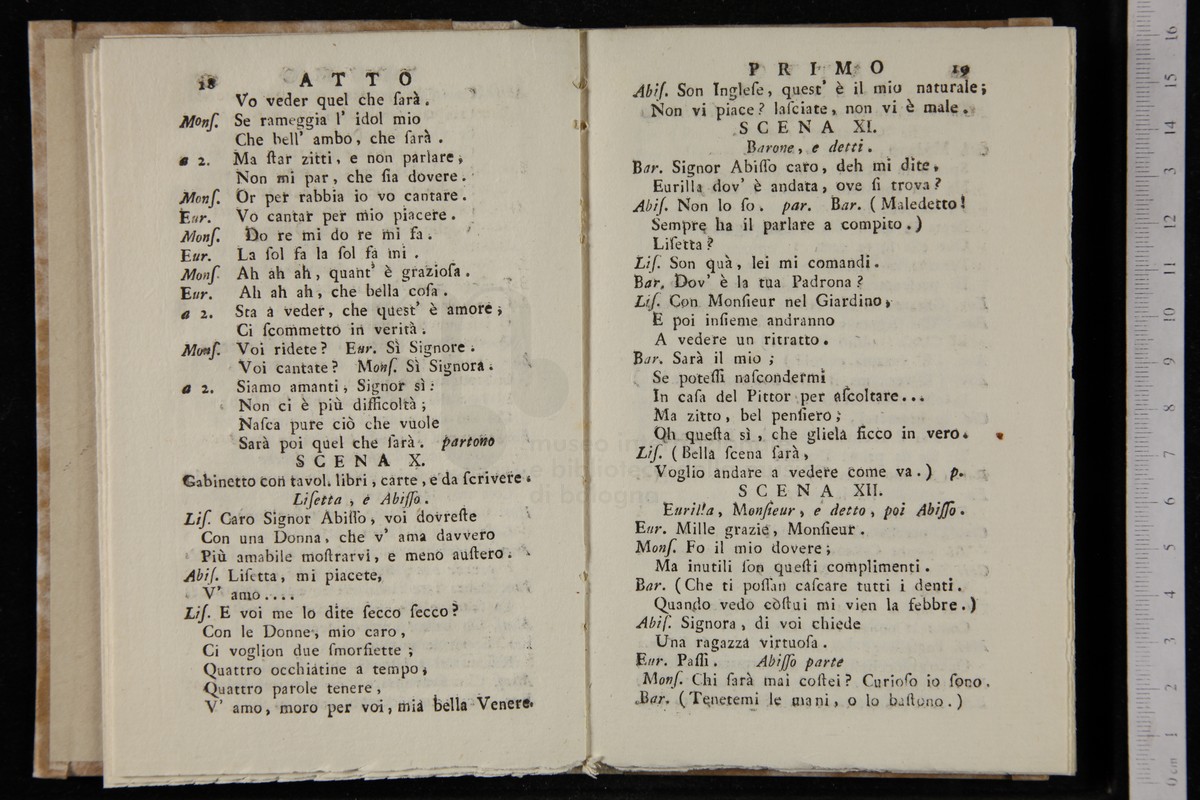 18 ATTO
Vo veder quel che ſarà.
Monſ. Se rameggia l' idol mio
Che bell' ambo, che ſarà.
a 2. Ma ſtar zitti, e non parlare,
Non mi par, che ſia dovere.
Monſ. Or per rabbia io vo cantare.
Eur. Vo cantar per mio piacere.
Monſ. Do re mi do re mi fa.
Eur. La ſol fa la ſol fa mi.
Monſ. Ah ah ah, quant' è grazioſa.
Eur. Ah ah ah, che bella coſa.
a 2. Sta a veder, che queſt' è amore;
Ci ſcommetto in verità.
Monſ. Voi ridete? Eur. Sì Signore.
Voi cantate? Monſ. Sì Signora.
a 2. Siamo amanti, Signor sì:
Non ci è più difficoltà;
Naſca pure ciò che vuole
Sarà poi quel che ſarà. partono
SCENA X.
Gabinetto con tavol. libri, carte, e da ſcrivere.
Liſetta, e Abiſſo.
Liſ. Caro Signor Abiſſo, voi dovreſte
Con una Donna, che v' ama davvero
Più amabile moſtrarvi, e meno auſtero.
Abiſ. Liſetta, mi piacete,
V' amo....
Liſ. E voi me lo dite ſecco ſecco?
Con le Donne, mio caro,
Ci voglion due ſmorfiette;
Quattro occhiatine a tempo,
Quattro parole tenere,
V' amo, moro per voi, mia bella Venere.
PRIMO 19
Abiſ. Son Ingleſe, queſt' è il mio naturale;
Non vi piace? laſciate, non vi è male.
SCENA XI.
Barone, e detti.
Bar. Signor Abiſſo caro, deh mi dite,
Eurilla dov' è andata, ove ſi trova?
Abiſ. Non lo ſo. par. Bar. (Maledetto!
Sempre ha il parlare a compito.)
Liſetta?
Liſ. Son quà, lei mi comandi.
Bar. Dov' è la tua Padrona?
Liſ. Con Monſieur nel Giardino,
E poi inſieme andranno
A vedere un ritratto.
Bar. Sarà il mio;
Se poteſſi naſcondermi
In caſa del Pittor per aſcoltare...
Ma zitto, bel penſiero;
Oh queſta sì, che gliela ficco in vero.
Liſ. (Bella ſcena ſarà,
Voglio andare a vedere come va.) p.
SCENA XII.
Eurilla, Monſieur, e detto, poi Abiſſo.
Eur. Mille grazie, Monſieur.
Monſ. Fo il mio dovere;
Ma inutili ſon queſti complimenti.
Bar. (Che ti poſſan caſcare tutti i denti.
Quando vedo coſtui mi vien la febbre.)
Abiſ. Signora, di voi chiede
Una ragazza virtuoſa.
Eur. Paſſi. Abiſſo parte
Monſ. Chi ſarà mai coſtei? Curioſo io ſono.
Bar. (Tenetemi le mani, o lo baſtono.)